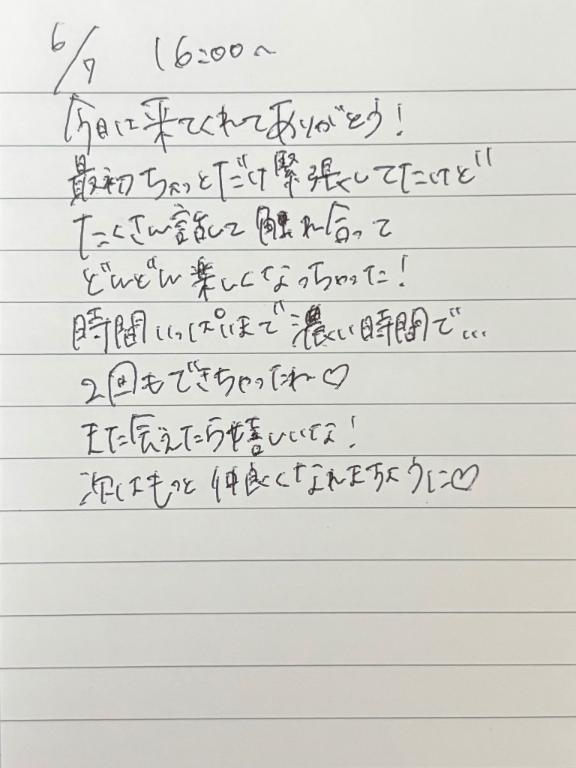 6/7 16:00〜
今日は来てくれてありがとう!
最初ちょっとだけ緊張してたけど
たくさん話して触れ合って
どんどん楽しくなっちゃった!
時間いっぱいまで濃い時間で…
2回もできちゃったね♡
また会えたら嬉しいな!
次はもっと仲良くなれますように♡